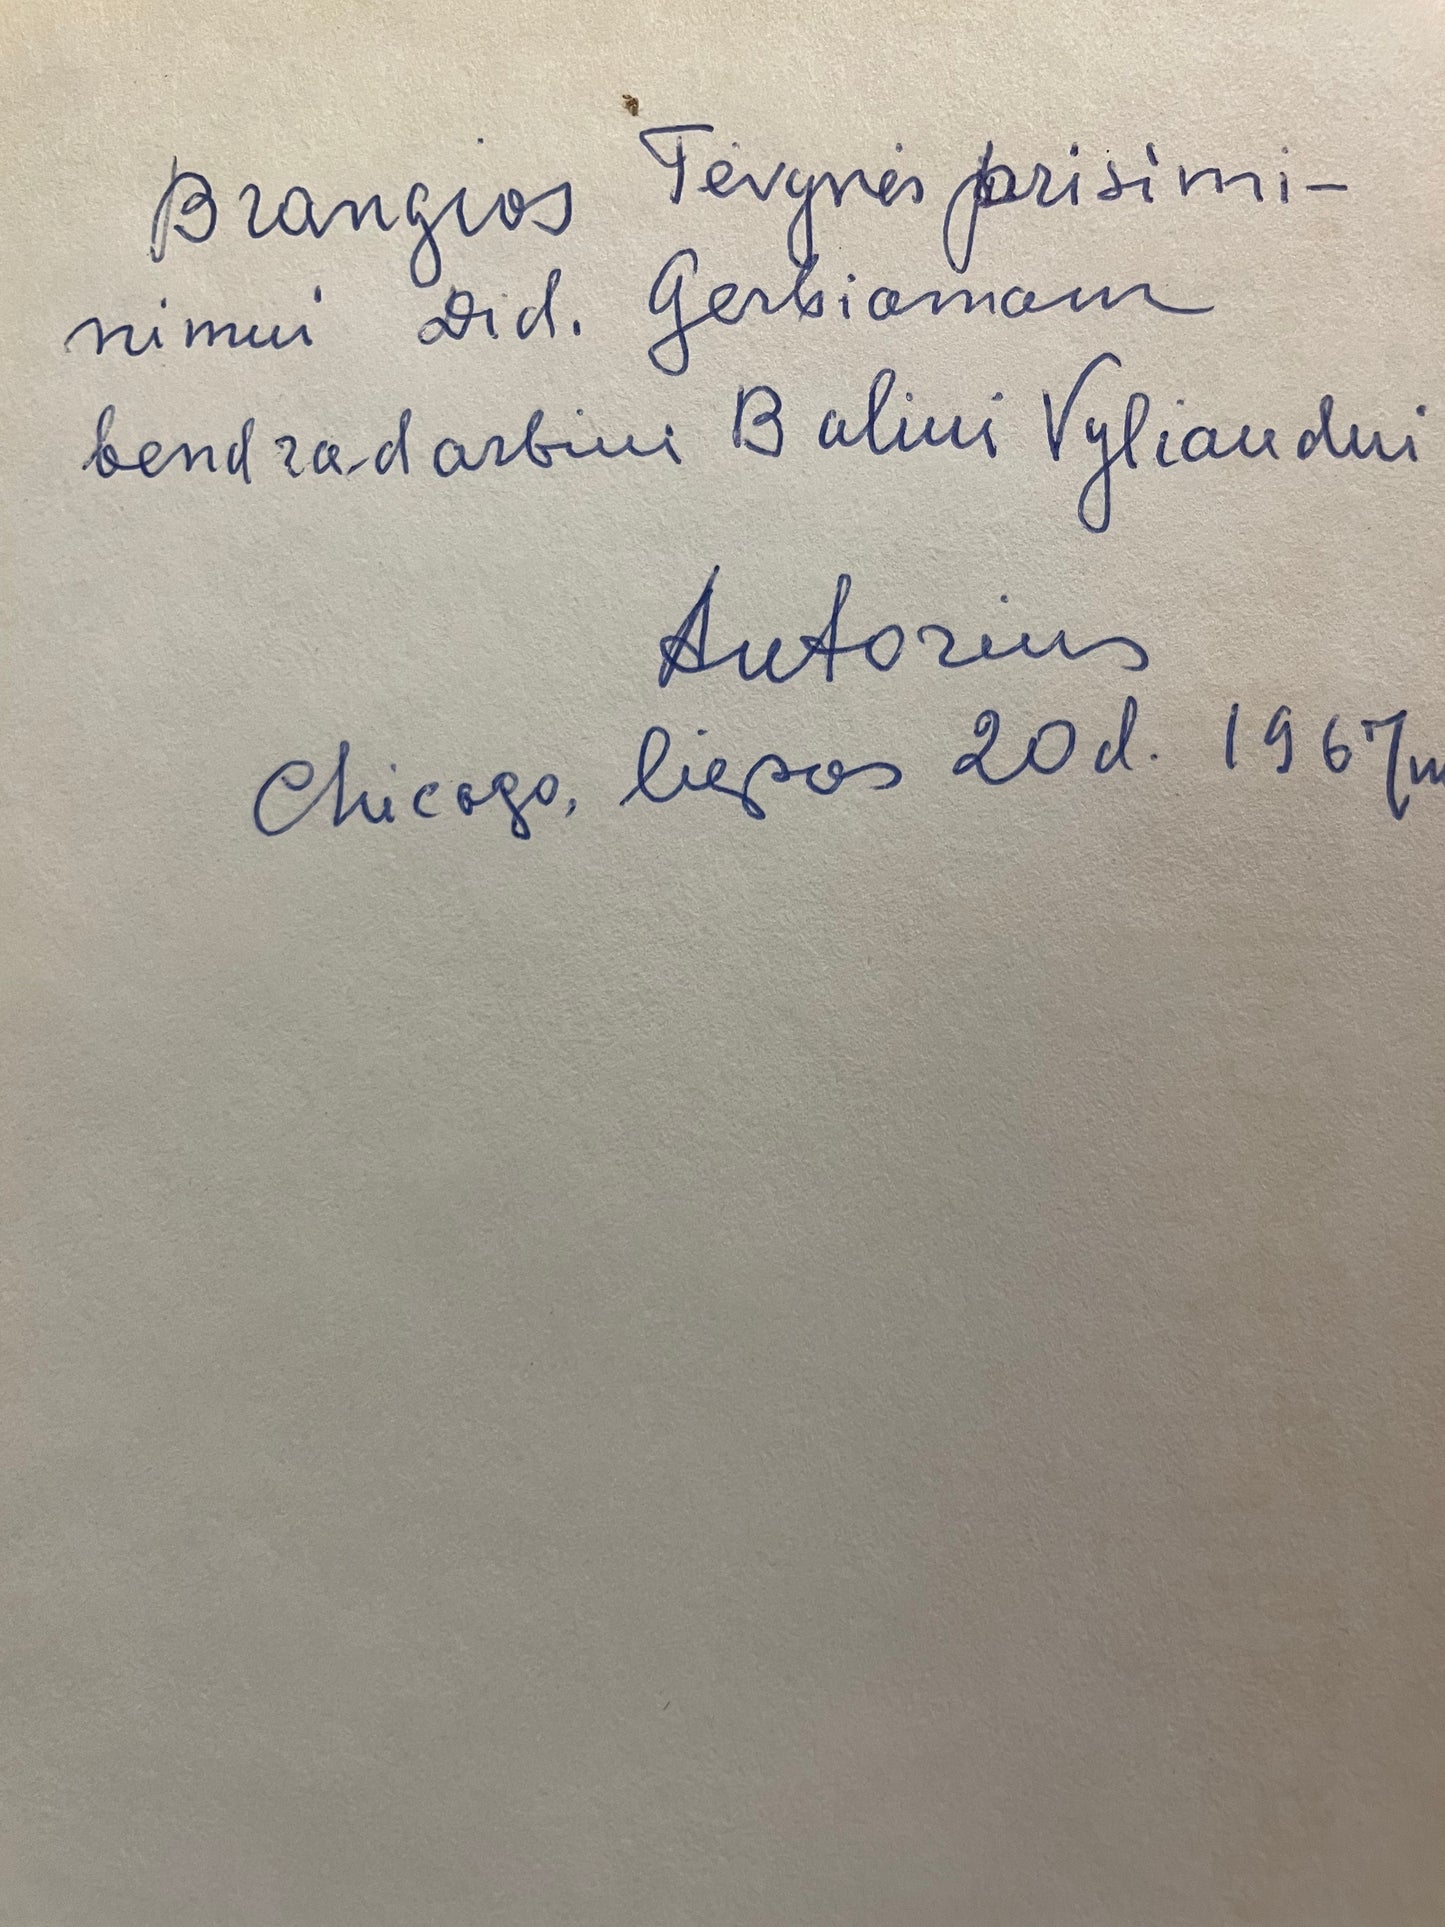 Brangios Tėvynės prisimi-
nimui Did. Gerbiamam
bendradarbiui Baliui Vyliaudui
Autorius
Chicago, liepos 20 d. 1967 m